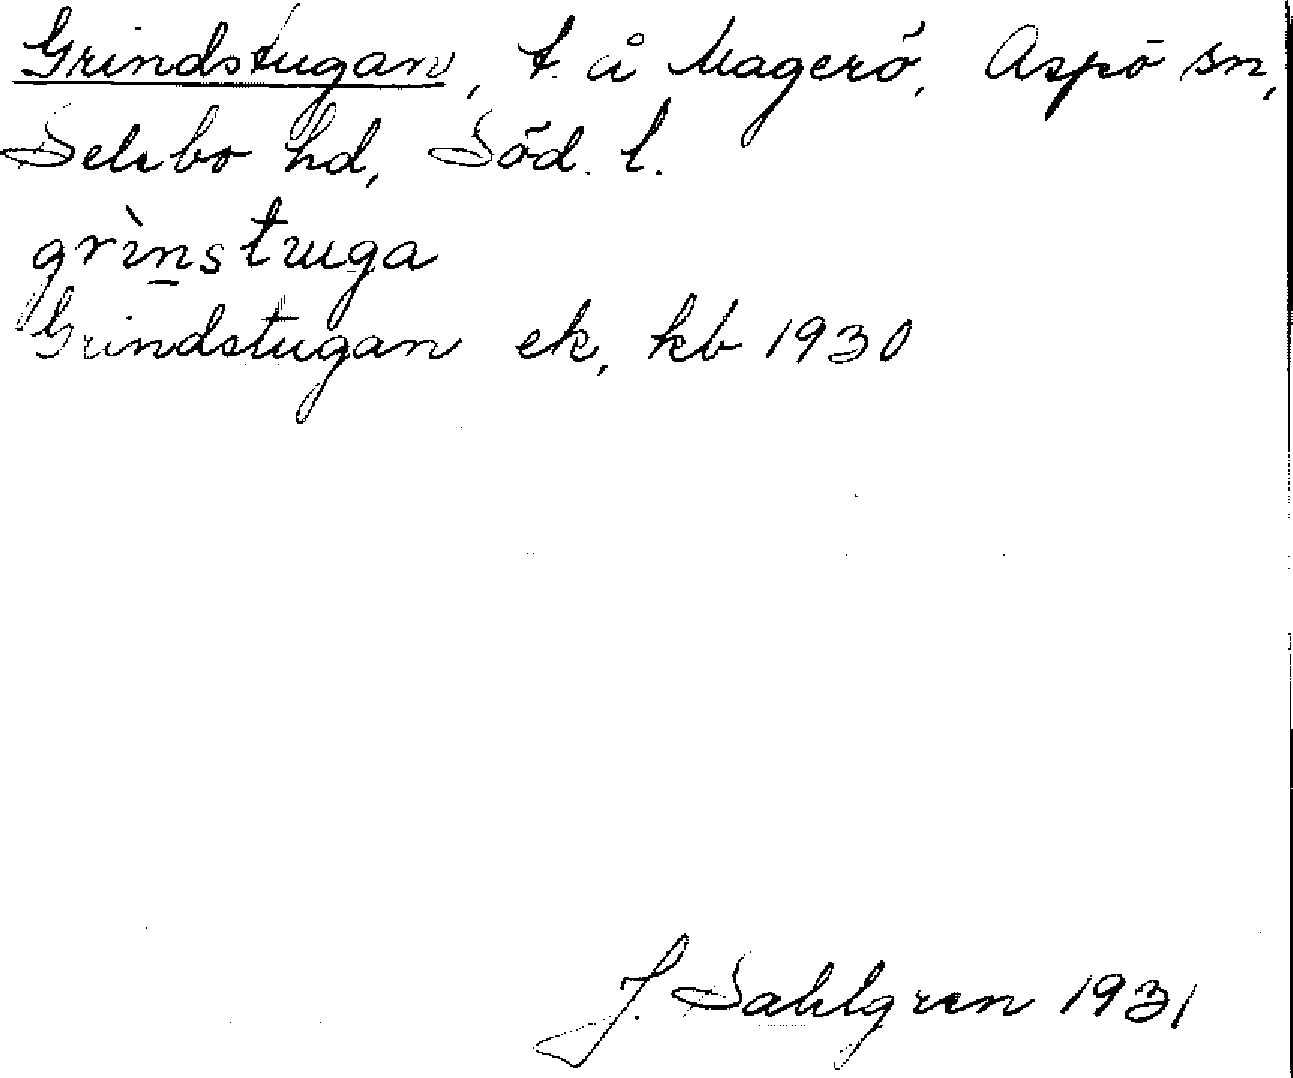 Grindstugan, t. å Magerö, Aspö sn,
Selebo hd, Söd. l.
grìnstuga
Grindstugan ek, kb 1930
J. Sahlgren 1931